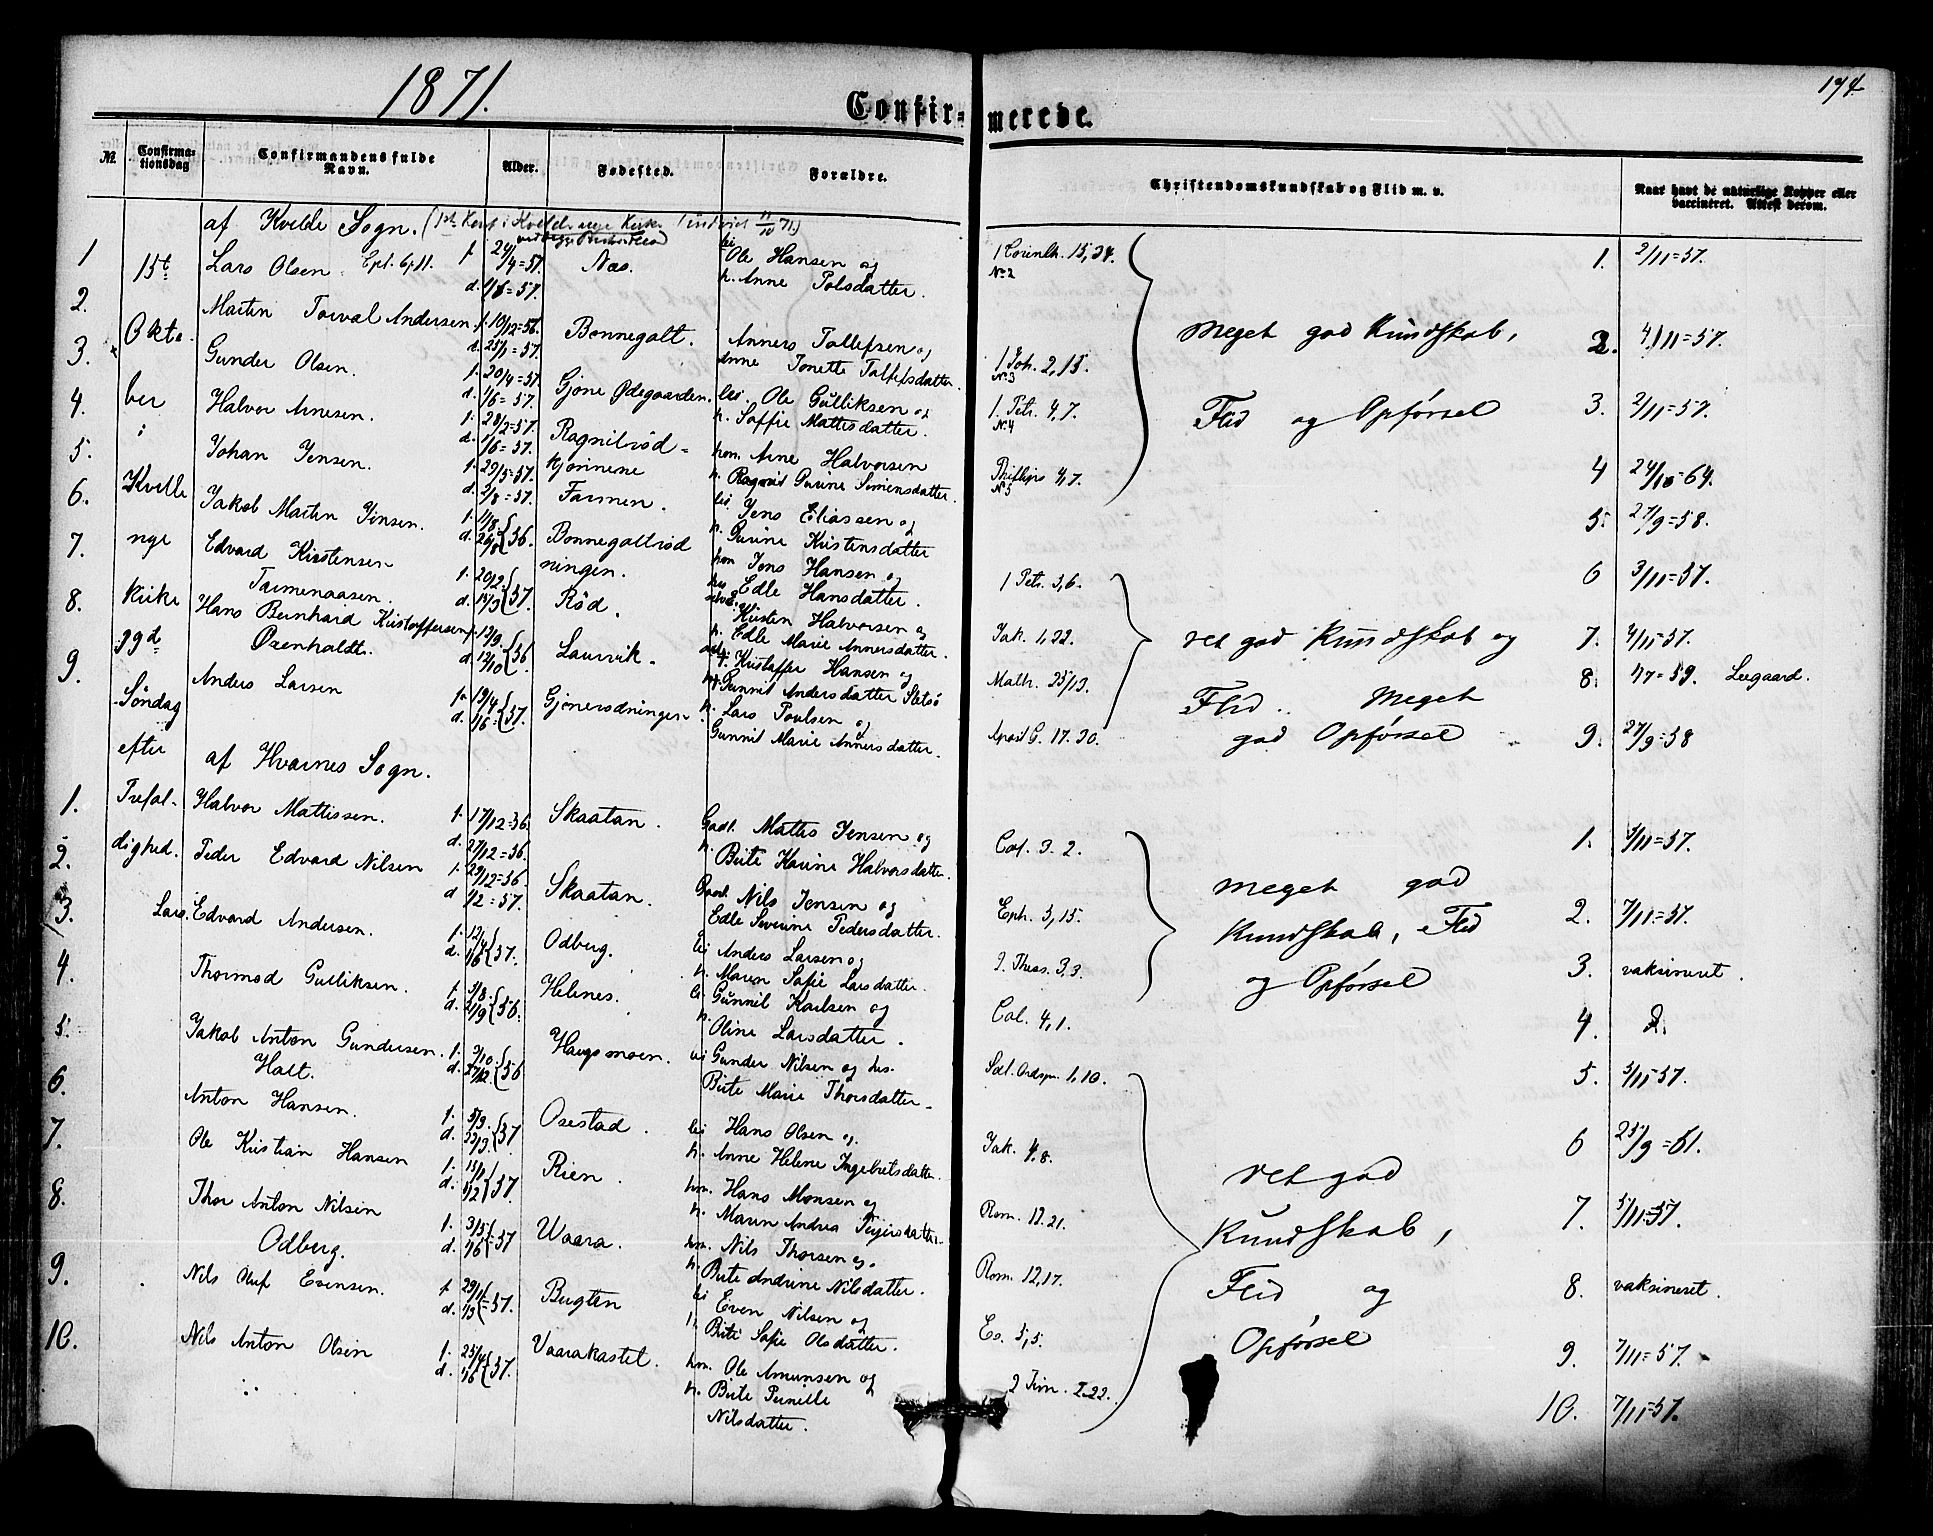 1871.
174
Confir-merede.
Nr. Confirmationsdag Confirmandens fulde Navn. Alder. Fødested. Forældre. Christendomskundskab og Flid m. v. Naar havt de naturlige Kopper eller vaccineret. Attest derom.
15t Oktober i Kvelle nye Kirke 19d Søndag efter Trefoldighed.
af Kvelde Sogn.
1 Lars Olsen. f. 24/4=57. d. 1/6=57. Næs. lei Ole Hansen og h. Anne Polsdatter. 1 Corinth. 15,24. 1. 2/11=57.
2. Martin Torval Andersen f. 10/12=56. d. 25/1=57. Bonnegolt. Anners Tollefsen og Anne Tonette Tollefsdatter. 1 Joh. 2,15. 2. 4/11=57.
3. Gunder Olsen. f. 20/4=57. d. 1/6=57. Gjone Ødegaarden. lei. Ole Gulliksen og h. Soffie Mattisdatter. 1. Petr. 4,7. 3. 2/11=57.
4. Halvor Arnesen. f. 28/2=57. d. 1/6=57. Ragnilrød-kjonnene hom. Arne Halvorsen h. Ragnil Gurine Simensdatter. Philips 4,7. 4 24/10=64.
5. Johan Jensen. f. 29/5=57. d. 2/8=57. Farmen. lei. Jens Eliassen og h. Gurine Kristensdatter 5. 27/9=58.
6. Jakob Martin Jensen. f. 11/8 d. 26/8 56. Bonnegoltrødningen. hom Jens Hansen og hus Edle Hansdatter. 1 Petr. 5,6. 6 3/11=57.
7. Edvard Kristensen Farmenaasen. f. 20/2 d. 15/3 57. Rød. Kristen Halvorsen og h. Edle Marie Annersdatter. Jak. 1,22. 7. 4/11=57.
8. Hans Bernhard Kristoffersen Oxenholdt. f. 13/9 d. 12/10 56 Laurvik. Kristoffer Hansen og Gunnil Andersdatter Math. 25,13. 8. 4/7=59. Leegaard.
9. Anders Larsen f. 19/4 d. 1/6 57. Gjonerødningen. h. Lars Poulsen og Gunnil Marie Annersdatter. Apost G. 17.30. 9. 27/9=58
meget god Kundskab,
Flid og Opførsel
ret god Kundskab og
Flid. Meget
god Opførsel
af Hvarnes Sogn.
1. Halvor Mattissen. f. 17/12=56. d. 27/12=56. Skaatan. Gadl. Mattis Jensen og h. Birte Karine Halvorsdatter. Col. 3. 2. 1. 3/11=57.
2. Peder Edvard Nilsen f. 29/12=56. d. 1/2=57. Skaatan. Nils Jensen og Edle Severine Pedersdatter. Eph. 5,15. 2. 7/11=57.
3. Lars Edvard Andersen. f. 12/4 d. 1/6 57. Odberg. lei Anders Larsen og h. Maren Sofie Larsdatter. 2. Thess. 3,3. 3. vaksineret.
4. Thormod Gulliksen. f. 3/8 d. 21/9 56. Helenes. lei Gunnil Karlsen og h. Oline Larsdatter. Col. 4,1. 4. d.
5. Jakob Anton Gundersen Holt. f. 9/10 d. 27/12 56 Haugsmoen. lei Gunder Nilsen og hus. Birte Marie Thorsdatter. Sal. Ordspr. 1,10. 5. 3/11=57.
6. Anton Hansen. f. 5/3 d. 22/3 57 Osestad. lei Hans Olsen og h. Anne Helene Ingebretsdatter. Jak. 4.8. 6 25/9=61.
7. Ole Kristian Hansen f. 15/1 d. 1/2 57. Rien. hm. Hans Monsen og h. Maren Andrea Rom. 12.21. 7. 5/11=57.
8. Thor Anton Nilsen Odberg. f. 3/5 d. 1/6 57 Vaara. hm. Nils Thorsen og h. Birte Andrine Nilsdatter. Rom. 12,17. 8. vaksineret.
9. Nils Oluf Evensen. f. 29/1 d. 1/3=57. Bugten lei Even Nilsen og h. Birte Sofie Olsdatter. Es. 5,5. 9. 7/11=57.
10. Nils Anton Olsen f. 25/4 d. 1/6 57. Vaarakastet. hm. Ole Amunsen og h. Birte Pernille Nilsdatter. 2 Tim. 2.22. 10. 7/11=57.
meget god
Kundskab, Flid
og Opførsel
ret god
Kundskab,
Flid og
Opførsel